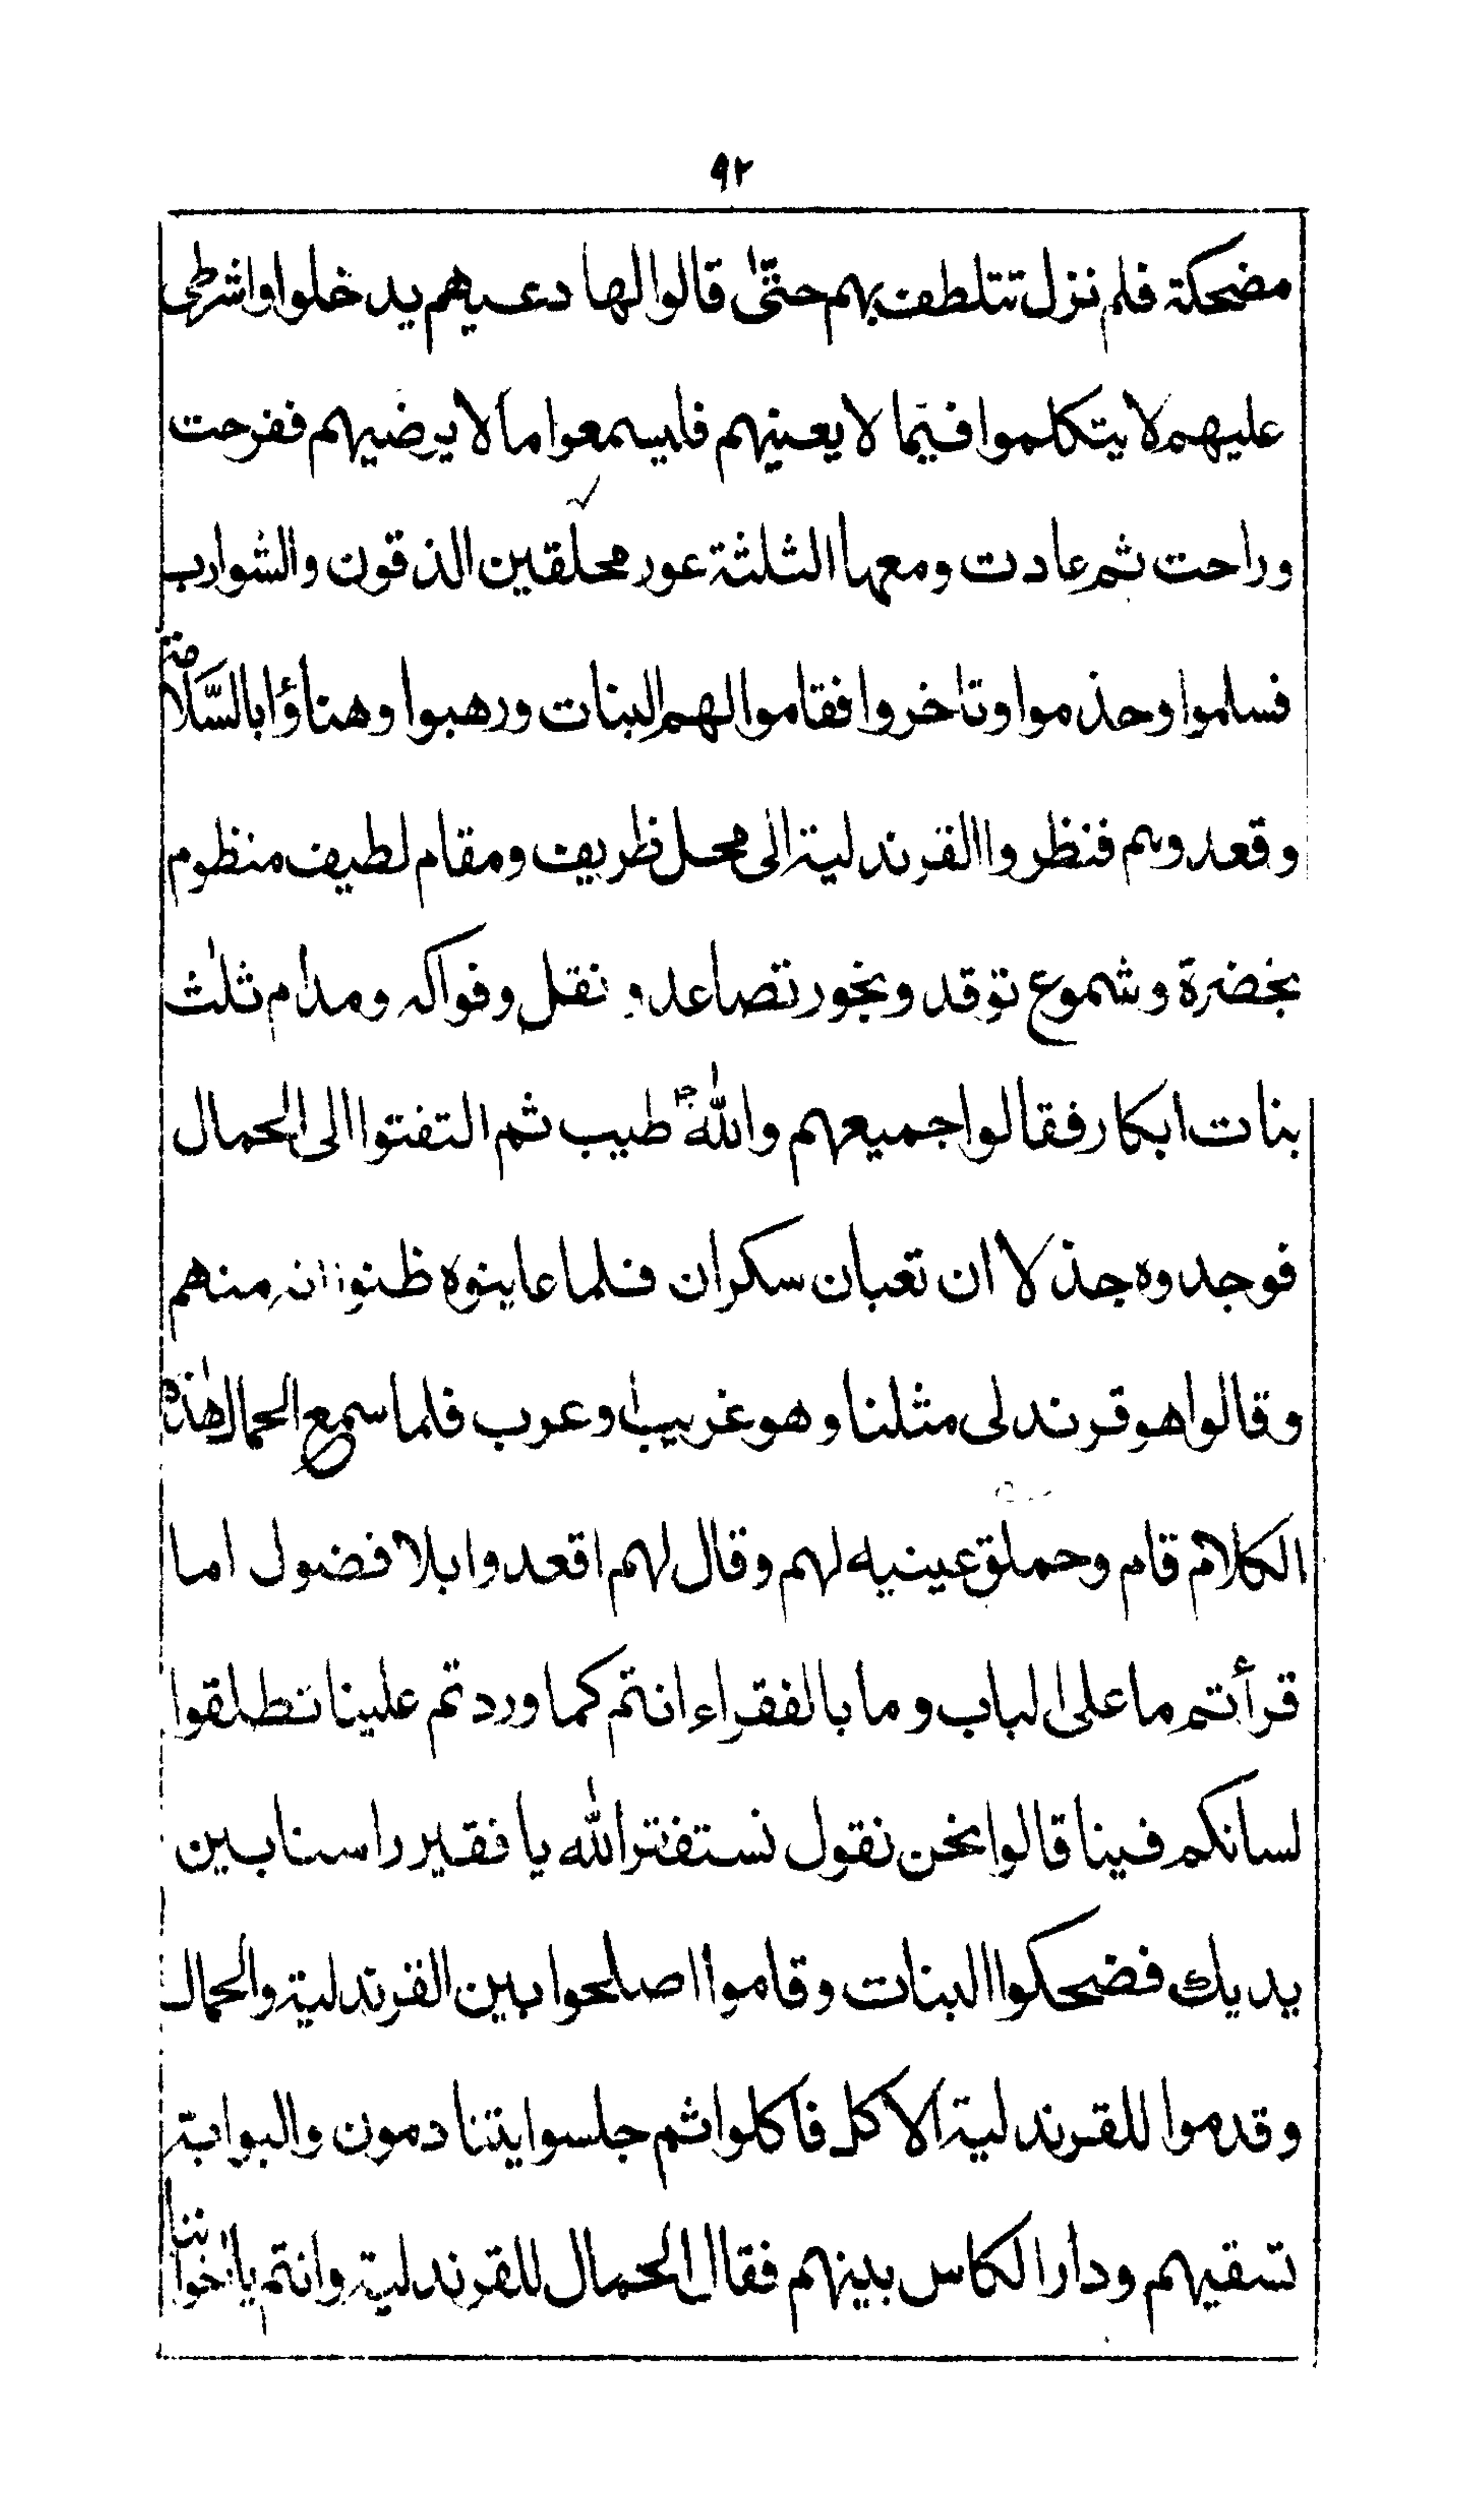 ٩٢
مضحكة فلم تزل تتلطف بهم حتى قالوا لها دعيهم يدخلوا واشرطي
عليهم لا يتكلموا فيما لا يعنيهم فليسمعوا ما لا يرضيهم ففرحت
وراحت ثم عادت ومعها الثلثة عور محلقين الذقون والشوارب
فسلموا وخذموا وتاخروا فقاموا لهم البنات ورهبوا وهناؤا بالسّلامة
وقعدوهم فنظروا القرندلية الى محل ظريف ومقام لطيف منظوم
بخضرة وشموع توقد وبخور تصاعد ونقل وفواكه ومدام ثلث
بنات ابكار فقالوا جميعهم والله طيب ثم التفتوا الى الحمال
فوجدوه جذلا ان تعبان سكران فلما عاينوه ظنوا انه منهم
وقالوا هو قرندلي مثلنا وهو غريب اوعوب فلما سمع الحمال هذا
الكلام قام وحملق عينيه لهم وقال لهم اقعدوا بلا فضول اما
قرأتم ما على الباب وما بالفقراء انتم كما وردتم علينا تطلقوا
لسانكم فينا قالوا نحن نقول نستفتر الله يا فقير راسنا بين
يديك فضحكوا البنات وقاموا اصلحوا بين القرندلية والحمال
وقدموا للقرندلية الاكل فاكلوا ثم جلسوا يتنادمون والبوابة
تسقيهم ودار الكاس بينهم فقال الحمال للقرندلية وانتم يا اخواننا